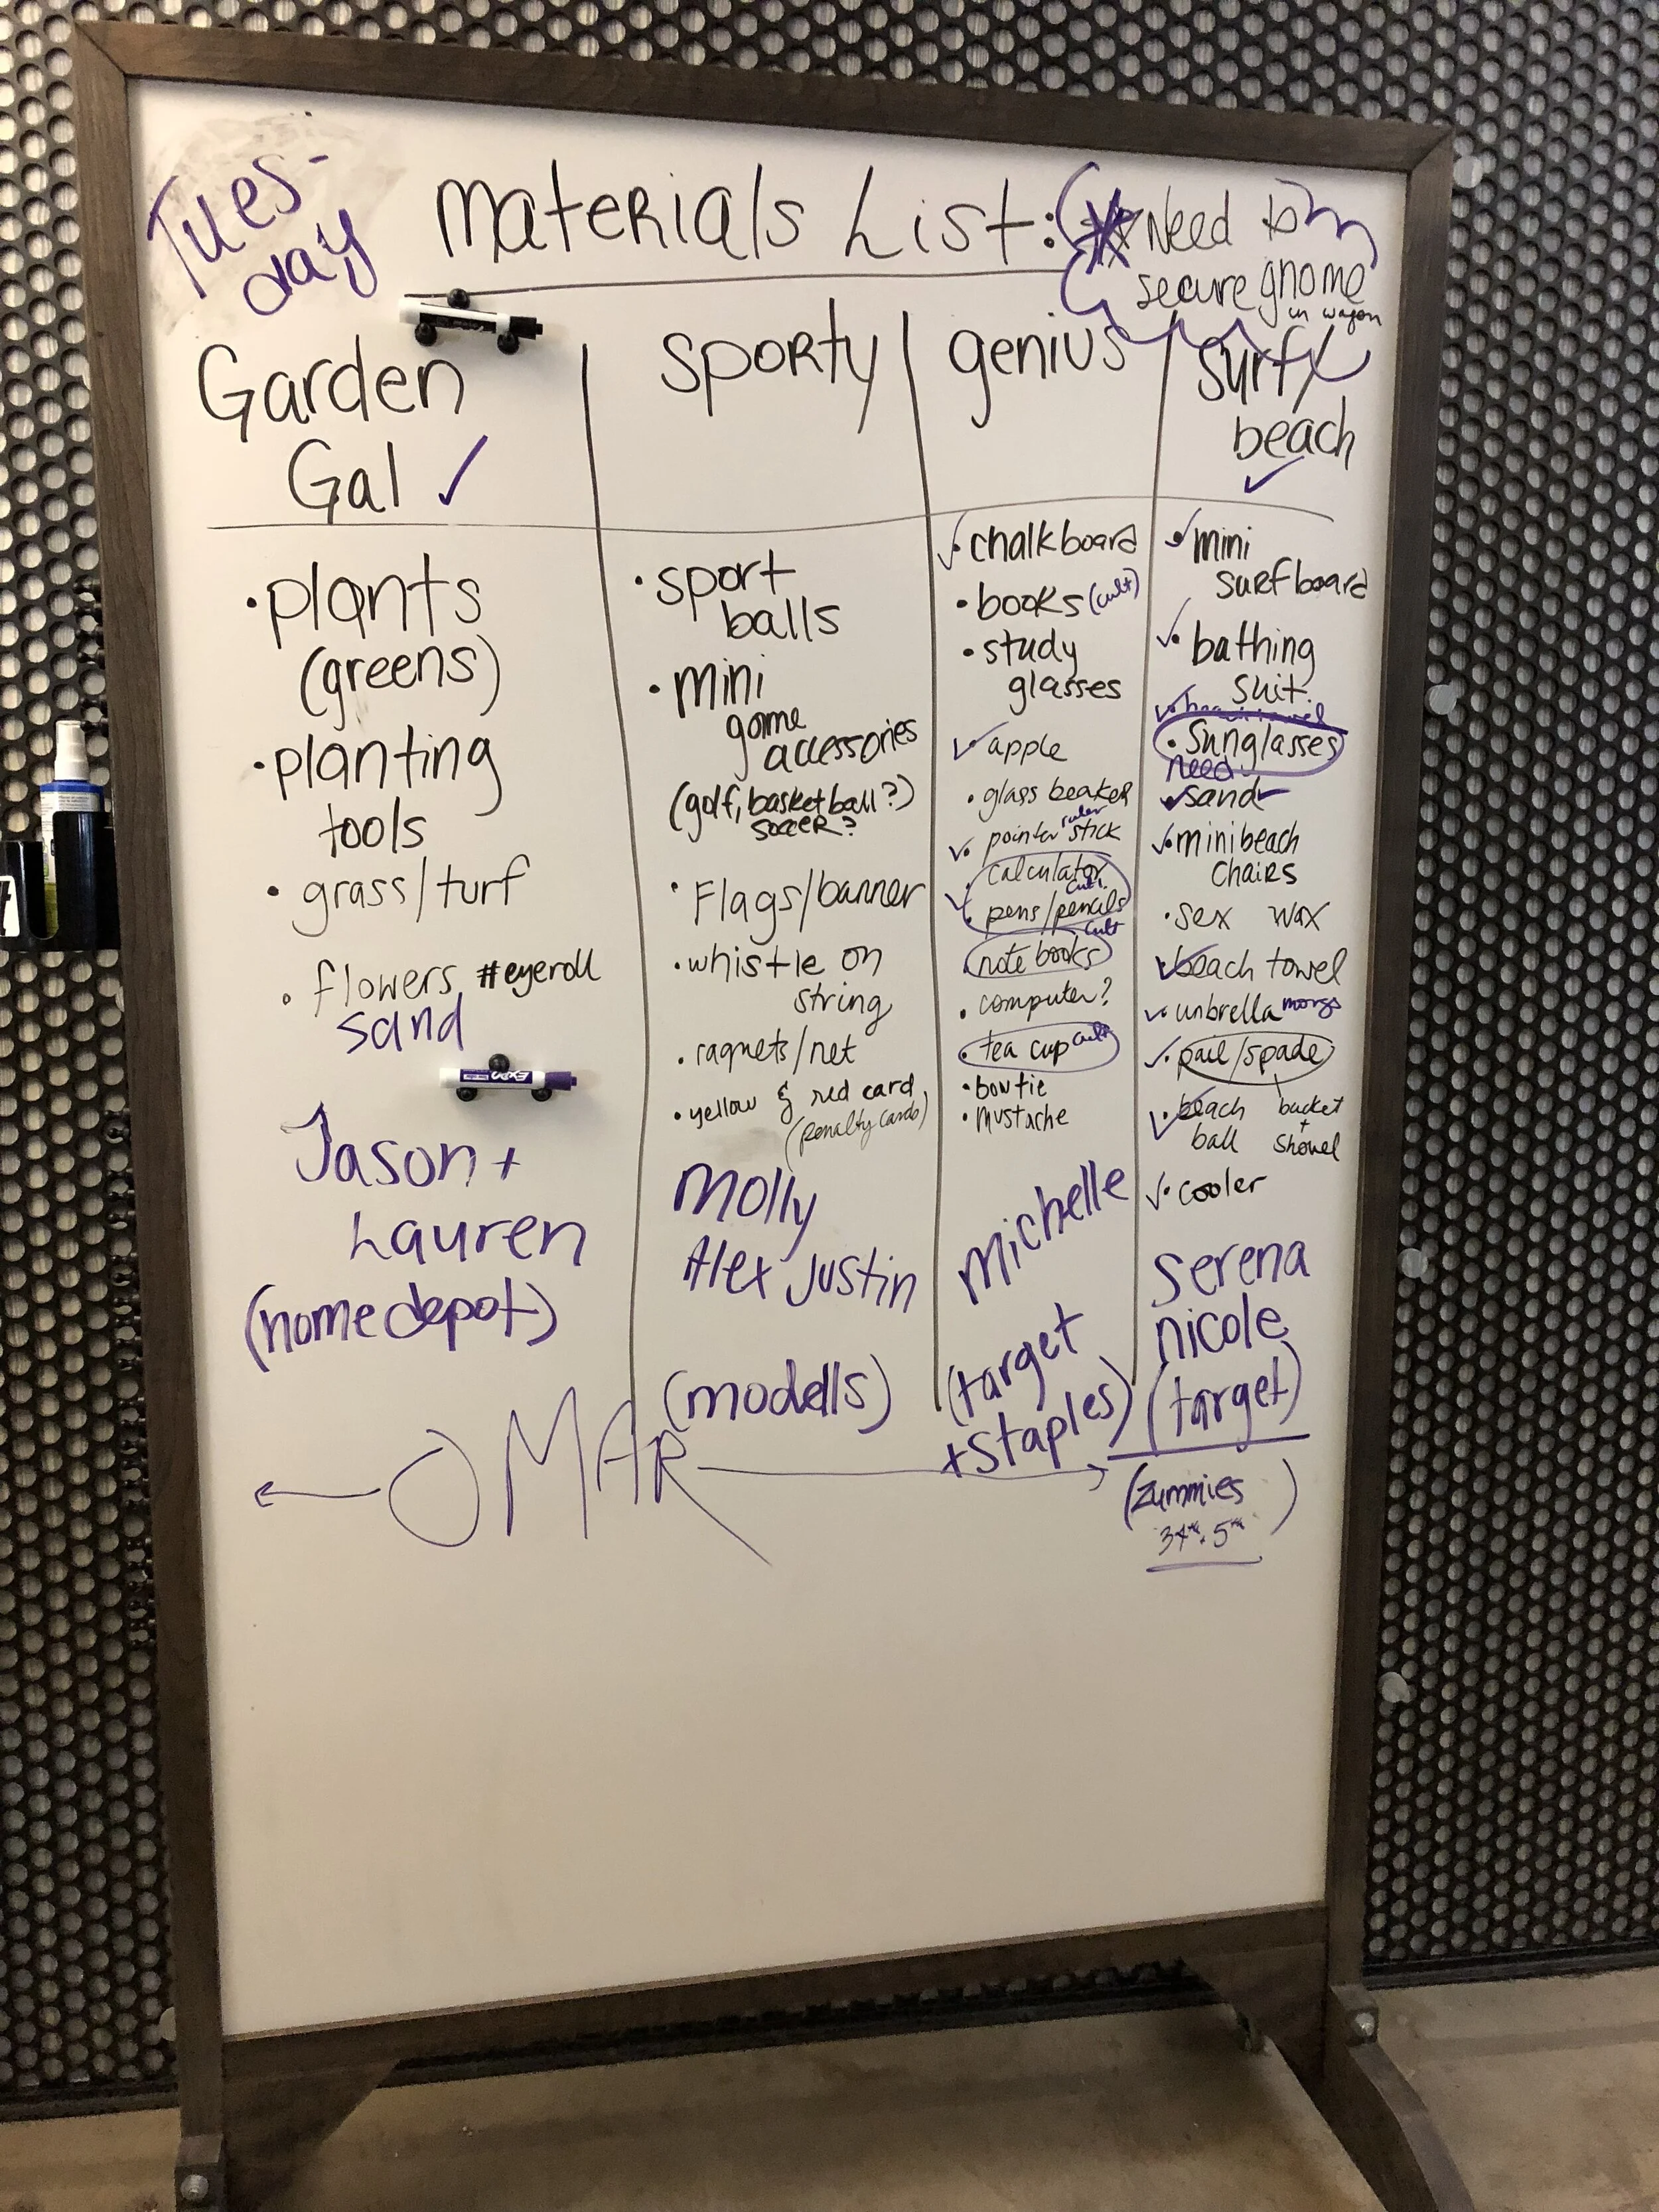 Tues-
day
Materials List:
Need to
secure gnome
in wagon
Garden
Gal ✓
• plants
(greens)
• planting
tools
• grass/turf
• flowers #eyeroll
sand
EXPO
Jason +
Lauren
(home depot)
Sporty
• sport
balls
• mini
game
accessories
(golf, basketball?)
soccer?
• Flags/banner
• whistle on
string
• raqnets/net
• yellow & red card
(penalty cards)
Molly
Alex Justin
(modells)
genius
✓• chalkboard
• books (cult)
• study
glasses
✓• apple
• glass beaker
ruler
✓• pointer stick
• calculator
cult
✓• pens/pencils
cult
note books
• computer?
• tea cup cult
• bowtie
• mustache
Michelle
(target
+ Staples)
Surf/
beach
✓
✓• mini
surfboard
✓• bathing
suit
✓
• Sunglasses
need
✓ sand ✓
✓• mini beach
chairs
• sex wax
✓ beach towel
✓• unbrella
✓• pail/spade
✓• beach
ball
bucket
+
shovel
✓• cooler
serena
nicole
(target)
(zummies
34th + 5th)
← OMAR →